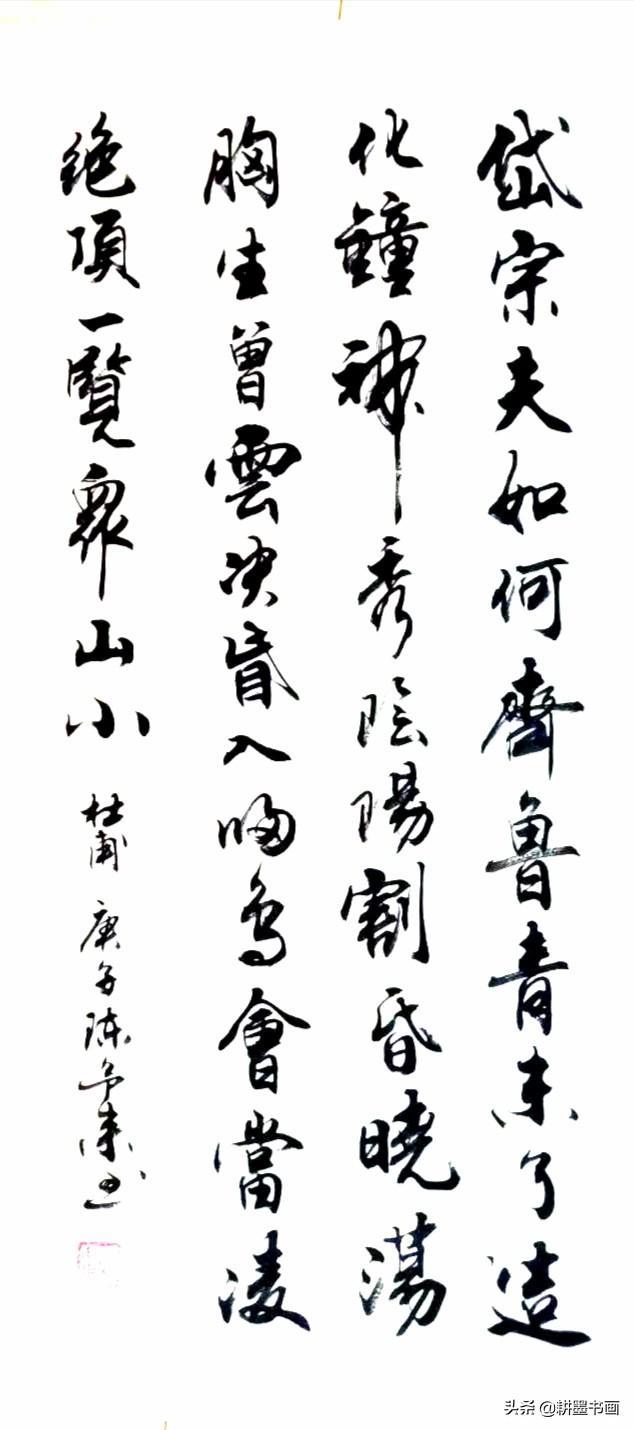 岱宗夫如何齊魯青未了造
化鐘神秀陰陽割昏曉蕩
胸生曾雲決眥入歸鳥會當凌
绝頂一覽眾山小 杜甫 庚子陈争来书
头条 @耕墨书画